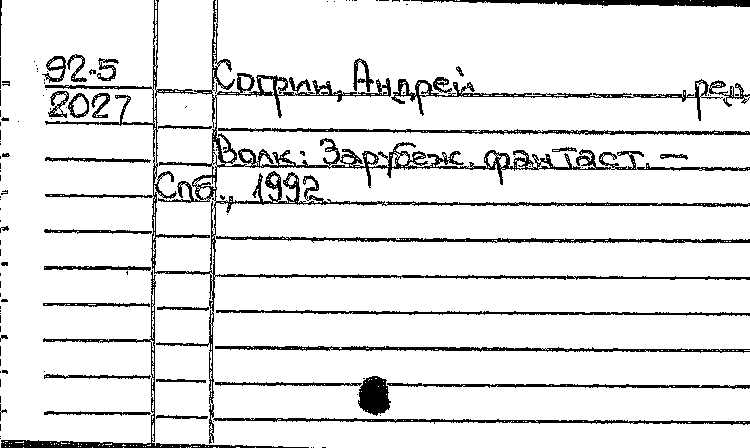 92-5
2027
Согрин, Андрей , ред.
Волк: Зарубеж. фантаст. —
Спб., 1992.